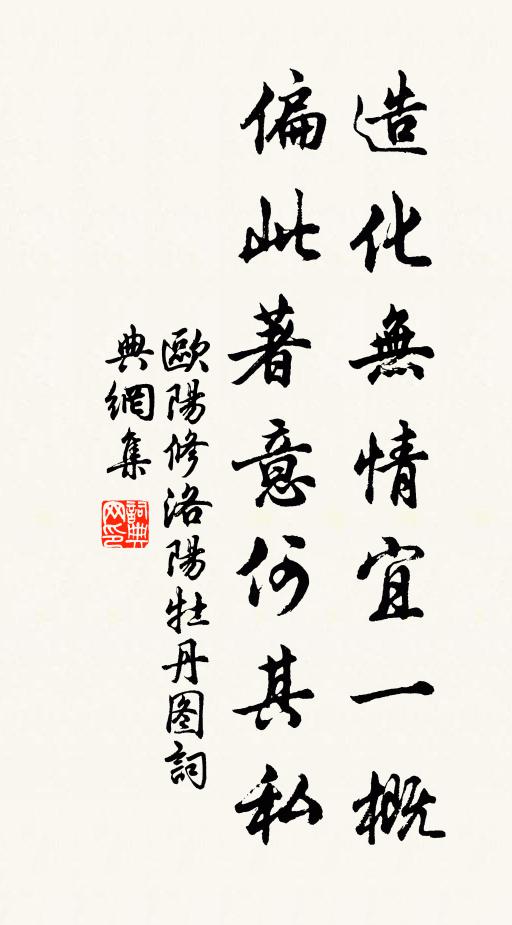 造化無情宜一概
偏此著意何其私
歐陽修洛陽牡丹图詞
典網集
詞典网印